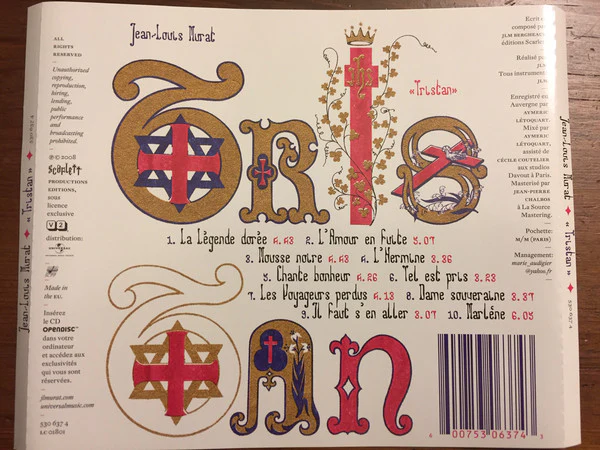 Jean-Louis Murat
Tris
«Tristan»
1. La Légende dorée 4.43 2. L'Amour en fuite 5.07
3. Mousse noire 4.43 4. L'Hermine 3.36
5. Chante bonheur 4.26 6. Tel est pris 3.23
7. Les Voyageurs perdus 4.13 8. Dame souveraine 3.37
9. Il faut s'en aller 3.07 10. Marlène 6.05
Tan
ALL
RIGHTS
RESERVED
Unauthorised
copying,
reproduction,
hiring,
lending,
public
performance
and
broadcasting
prohibited.
℗ © 2008
Scarlett
PRODUCTIONS
EDITIONS,
sous
licence
exclusive
V2
distribution:
UNIVERSAL
Made in
the EU.
Insérez
le CD
OPENDISC
dans votre
ordinateur
et accédez aux
exclusivités
qui vous sont
réservées.
jlmurat.com
universalmusic.com
530 637 4
LC 01801
Ecrit et
composé par
JLM BERGHEAUD
éditions Scarlett
Réalisé par
JLM
Tous instruments
JLM
Enregistré en
Auvergne par
AYMERIC
LÉTOQUART.
Mixé par
AYMERIC
LÉTOQUART,
assisté de
CÉCILE COUTELIER
aux studios
Davout à Paris.
Masterisé par
JEAN-PIERRE
CHALBOS
à La Source
Mastering.
Pochette:
M/M (PARIS)
Management:
marie_audigier
@yahoo.fr
0 00753 06374 3
Jean-Louis Murat «Tristan» 530 637 4
Jean-Louis Murat «Tristan» 530 637 4